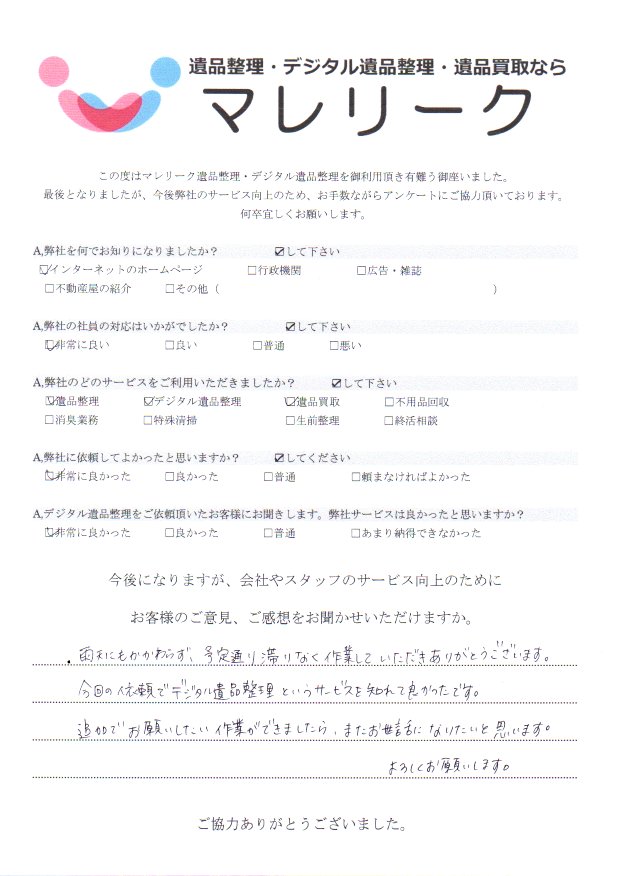 遺品整理・デジタル遺品整理・遺品買取なら
マレリーク
この度はマレリーク遺品整理・デジタル遺品整理を御利用頂き有難う御座いました。
最後となりましたが、今後弊社のサービス向上のため、お手数ながらアンケートにご協力頂いております。
何卒宜しくお願いします。
A,弊社を何でお知りになりましたか？ ☑して下さい
☑インターネットのホームページ □行政機関 □広告・雑誌
□不動産屋の紹介 □その他（ ）
A,弊社の社員の対応はいかがでしたか？ ☑して下さい
☑非常に良い □良い □普通 □悪い
A,弊社のどのサービスをご利用いただきましたか？ ☑して下さい
☑遺品整理 ☑デジタル遺品整理 ☑遺品買取 □不用品回収
□消臭業務 □特殊清掃 □生前整理 □終活相談
A,弊社に依頼してよかったと思いますか？ ☑してください
☑非常に良かった □良かった □普通 □頼まなければよかった
A,デジタル遺品整理をご依頼頂いたお客様にお聞きします。弊社サービスは良かったと思いますか？
☑非常に良かった □良かった □普通 □あまり納得できなかった
今後になりますが、会社やスタッフのサービス向上のために
お客様のご意見、ご感想をお聞かせいただけますか。
・雨天にもかかわらず、予定通り滞りなく作業していただきありがとうございます。
今回の依頼でデジタル遺品整理というサービスを知れて良かったです。
追加でお願いしたい作業ができましたら、またお世話になりたいと思います。
よろしくお願いします。
ご協力ありがとうございました。